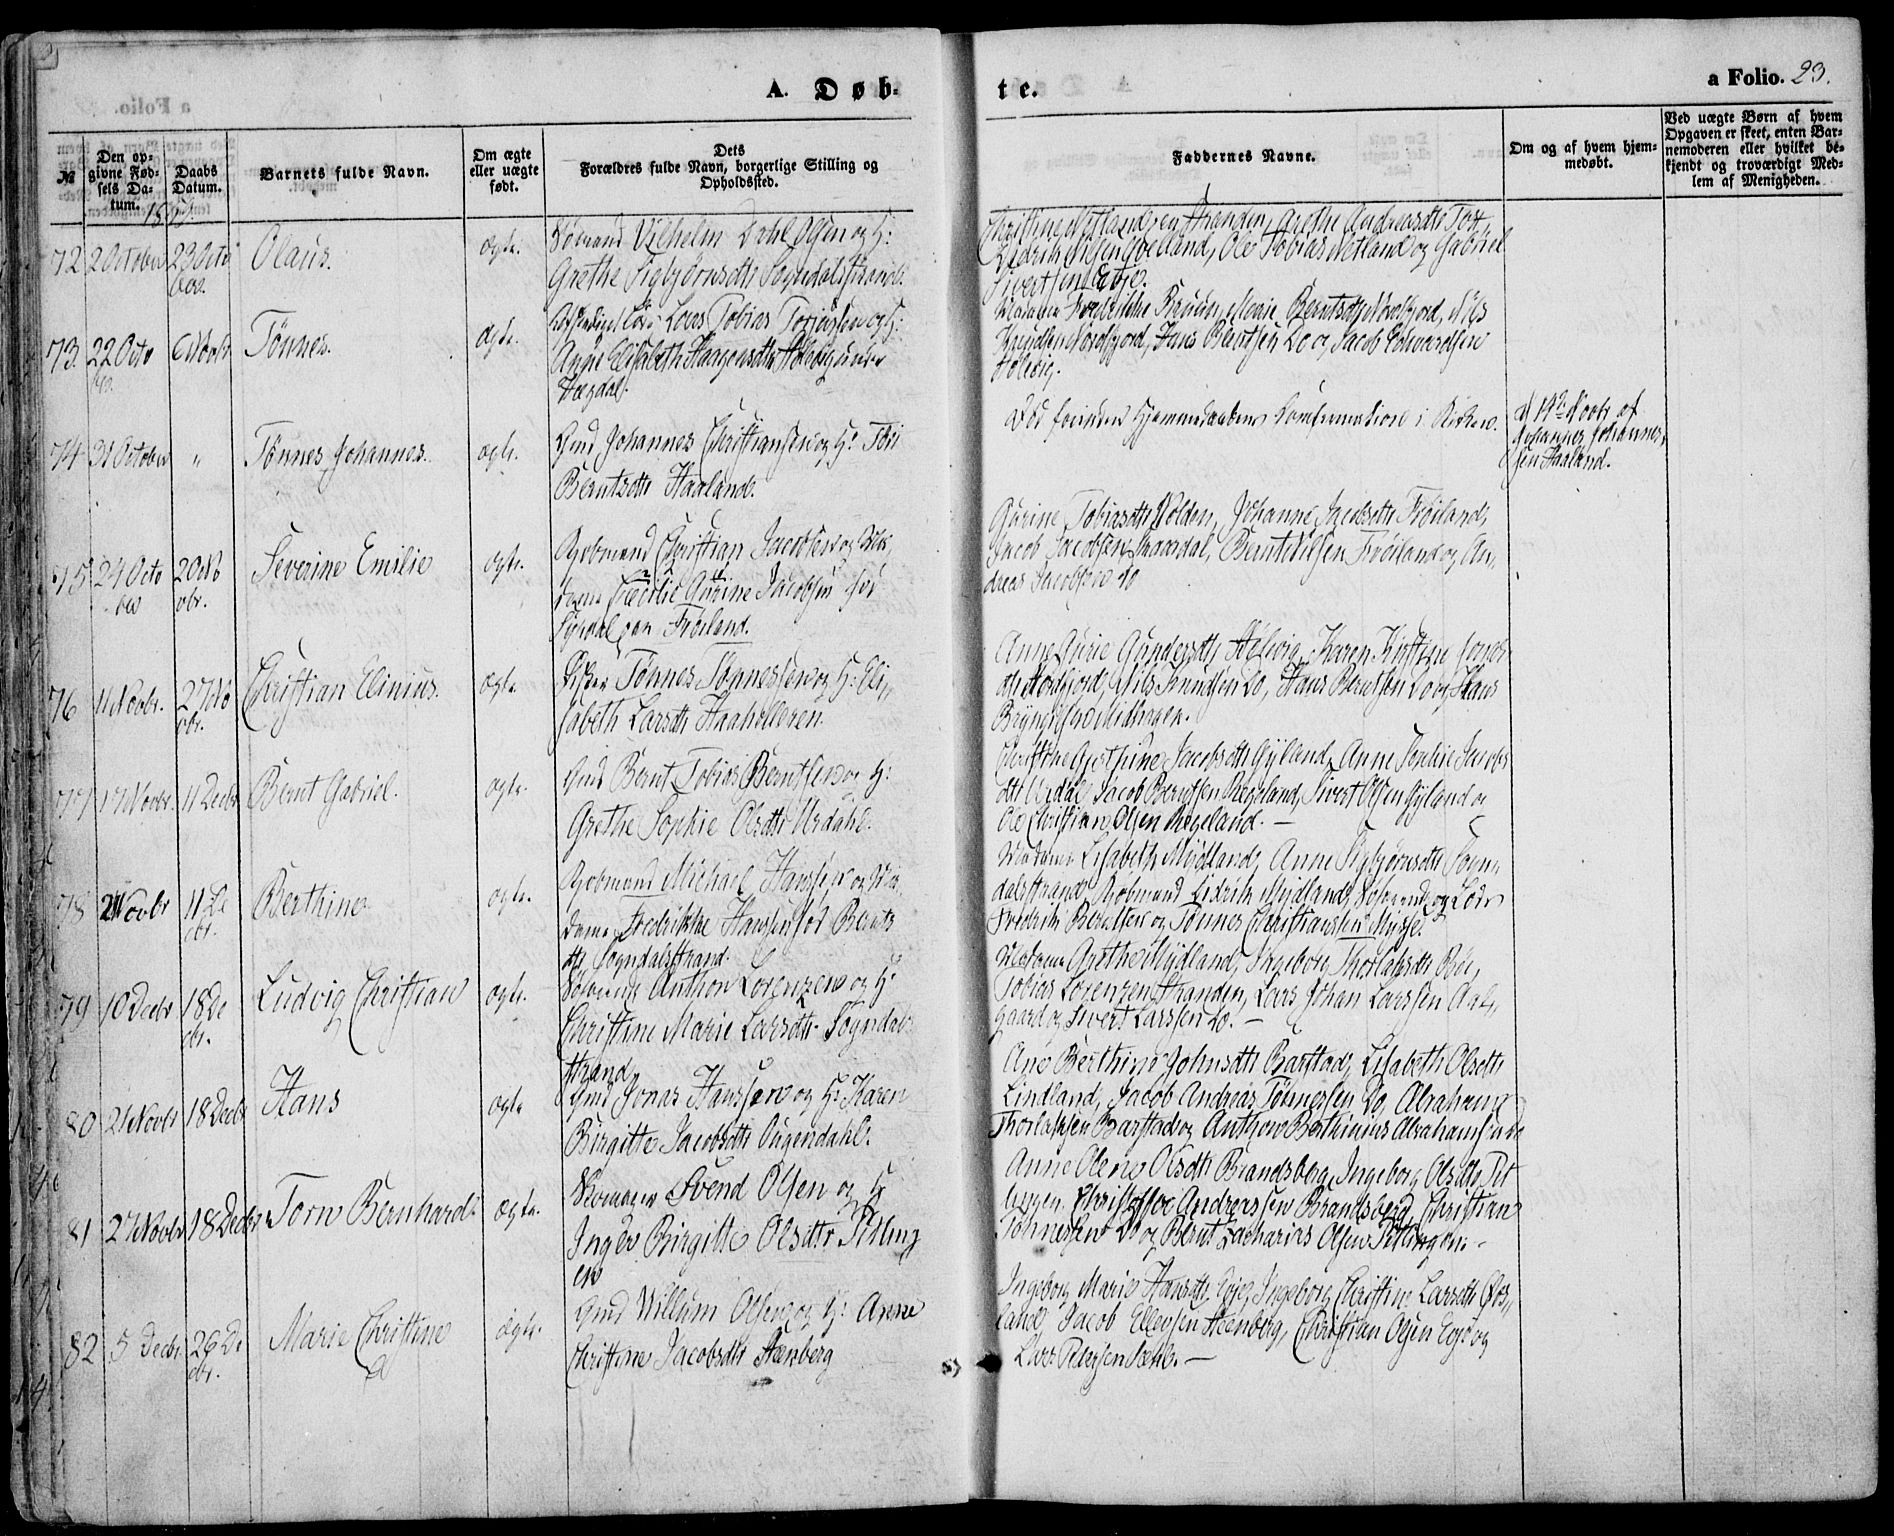 A. Døb-
te.
a Folio. 23.
№
Den op-
givne Fød-
sels Da-
tum.
Daabs
Datum.
Barnets fulde Navn.
Om ægte
eller uægte
født.
Dets
Forældres fulde Navn, borgerlige Stilling og
Opholdssted.
Faddernes Navne.
Om og af hvem hjem-
medøbt.
Ved uægte Børn af hvem
Opgaven er skeet, enten Bar-
nemoderen eller hvilket be-
kjendt og troværdigt Med-
lem af Menigheden.
72 2 October 23 Octo
ber.
Olaus.
ægte.
Sømand Vilhelm Dahl Olsen og H:
Grethe Sigbjørnsdtr Sogndalsstrand.
Christine Netland, Stranden, Grethe Andreasdtr
Didrik Nilsen Qvelland, Ole Tobias Netland og Gabriel
Sivertsen Eeje.
73. 22 Octo
ber.
6 Novbr
Tønnes.
ægte.
Lars Tobias Torjussen og H:
Anne Elisabeth Haagensdtr Hølevig under
Hægdal.
Madame Fredrikke Bruun, Marie Berntsdtr Nordfjord, Nils
Knudsen Nordfjord, Hans Berntsen Do og Jacob Edvardsen
Hølevig.
74 31 October
"
Tønnes Johannes.
ægte.
Gmd Johannes Christiansen og H: Tøri
Berntsdtr Haaland.
Død forinden Hjemmedaabens Confirmation i Kirken.
d 14de Novbr af
Johannes Johannes-
sen Haaland.
75 24 Octo
ber
20 No
vbr.
Severine Emilie
ægte.
Kjøbmand Christian Jacobsen og Ma-
dame Cecilie Gurine Jacobsen
Frøiland.
Gurine Tobiasdtr Volden, Johanne Jacobsdtr Frøiland,
Jacob Jacobsen Aaersdal, Bernt Nilsen Frøiland og An-
dreas Jacobsen do
76 11 Novbr. 27 No
vbr.
Christian Elinius.
ægte.
Fisker Tønnes Tønnessen og H: Eli-
sabeth Larsdtr Haahelleren.
Anne Gurie Gundersdtr Hølevig, Karen Kirstine Jonas-
dtr Nordfjord, Nils Knudsen Do, Hans Berntsen Do og Hans
Bryngelsen Midhagen.
77 17 Novbr. 11 Decbr
Bernt Gabriel.
ægte.
Gmd Bernt Tobias Berntsen og H:
Grethe Sophie Olsdtr Urdahl.
Christine Jacobsdtr Gyland, Anne Sophie Jacobs
dtr Urdal, Jacob Berntsen Regeland, Sivert Olsen Gyland og
Ole Christian Olsen Regeland. —
78 2 Novbr 11 De
cbr.
Berthine
ægte.
Kjøbmand Michael Hanssen og Ma-
dame Fredrikke Hanssen fød Bernts
dtr Sogndalsstrand.
Madame Lisabeth Mydland, Anne Sigbjørnsdtr Sogn-
dalsstrand, Kjøbmand Didrik Mydland, og Lods
Fredrik Berntsen og Tønnes Christianssen Mysse.
79 10 Decbr 18 De
cbr.
Ludvig Christian
ægte.
Sømand Anthon Lorenzen og H:
Christine Marie Larsdtr. Sogndals
strand
Madame Grethe Mydland, Ingeborg Thorlaksdtr Røe,
Tobias Lorenzen Stranden, Lars Johan Larssen Aal-
gaard og Sivert Larssen Do. —
80 21 Novbr 18 Decbr
Hans
ægte
Gmd Jonas Hanssen og H: Karen
Birgitte Jacobsdtr Ougendahl.
Ane Berthine Johnsdtr Barstad, Lisabeth Olsdtr
Lindland, Jacob Andreas Tønnessen Do, Abraham
Thorlaksen Barstad og Anthon Berthinius Abrahamsen do
81 27 Novbr 18 Decbr
Torn Bernhard.
ægte.
Skomager Svend Olsen og H
Inger Birgitte Olsdtr Titling
en
Anne Olene Olsdtr Brandsberg, Ingeborg Olsdtr Tit
lingen, Christoffer Andreassen Brandsberg, Christian
Tønnessen Do og Bernt Zacharias Olsen Titlingen. -
82 5 Decbr 26 De
cbr.
Marie Christine
ægte.
Gmd Villum Olsen og H: Anne
Christine Jacobsdtr Steenberg
Ingeborg Marie Hansdtr Eeje, Ingeborg Christine Larsdtr Øvs-
land, Jacob Ellevsen Steenberg, Christian Olsen Egeö og
Lars Pedersen —